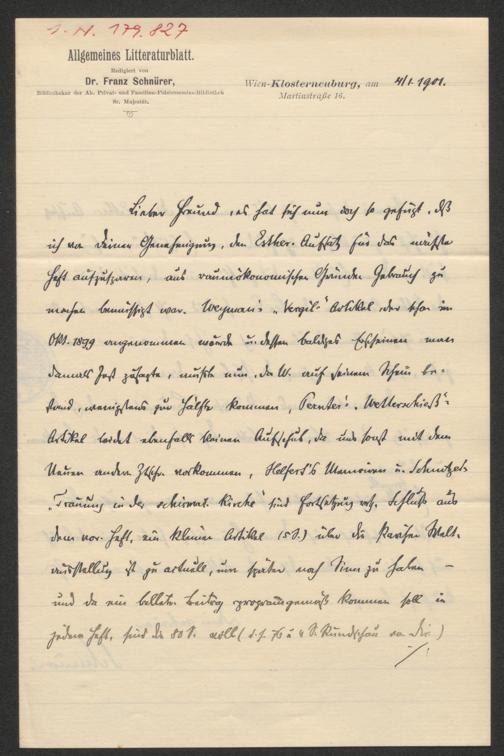 I. N. 179.827
Allgemeines Litteraturblatt.
Redigiert von
Dr. Franz Schnürer,
Bibliothekar der Ak. Privat- und Familien-Fideicommiss-Bibliothek
Sr. Majestät.
Wien-Klosterneuburg, am 4/I. 1901.
Martinstraße 16.
Lieber Freund, es hat sich nun doch so gefügt, dß
ich von deiner Genehmigung, den Esther-Aufsatz für das nächste
Heft aufzusparen, aus raumökonomischen Gründen Gebrauch zu
machen bemüssigt war. Weyman's „Vergil"-Artikel, der schon im
Okt. 1899 angenommen wurde u. dessen baldiges Erscheinen man
damals fest zusagte, mußte nun, da W. auf seinem Schein be-
stand, wenigstens zur Hälfte kommen, Pernter's „Wetterschieß"-
Artikel leidet ebenfalls keinen Aufschub, da uns sonst mit dem
Neuen andere Ztschr. vorkommen, Helfert's Memoiren u. Schnitzer
„Trauung in der schismat. Kirche" sind Fortsetzung resp. Schluß aus
dem vor. Heft, ein kleiner Artikel (5 S.) über die Pariser Welt-
ausstellung ist zu actuell, um später noch Sinn zu haben –
und da ein belletr. Beitrag programmgemäß kommen soll in
jedem Heft, sind die 80 S. voll (d. h. 76 u. 4 S. Rundschau von Dir.)